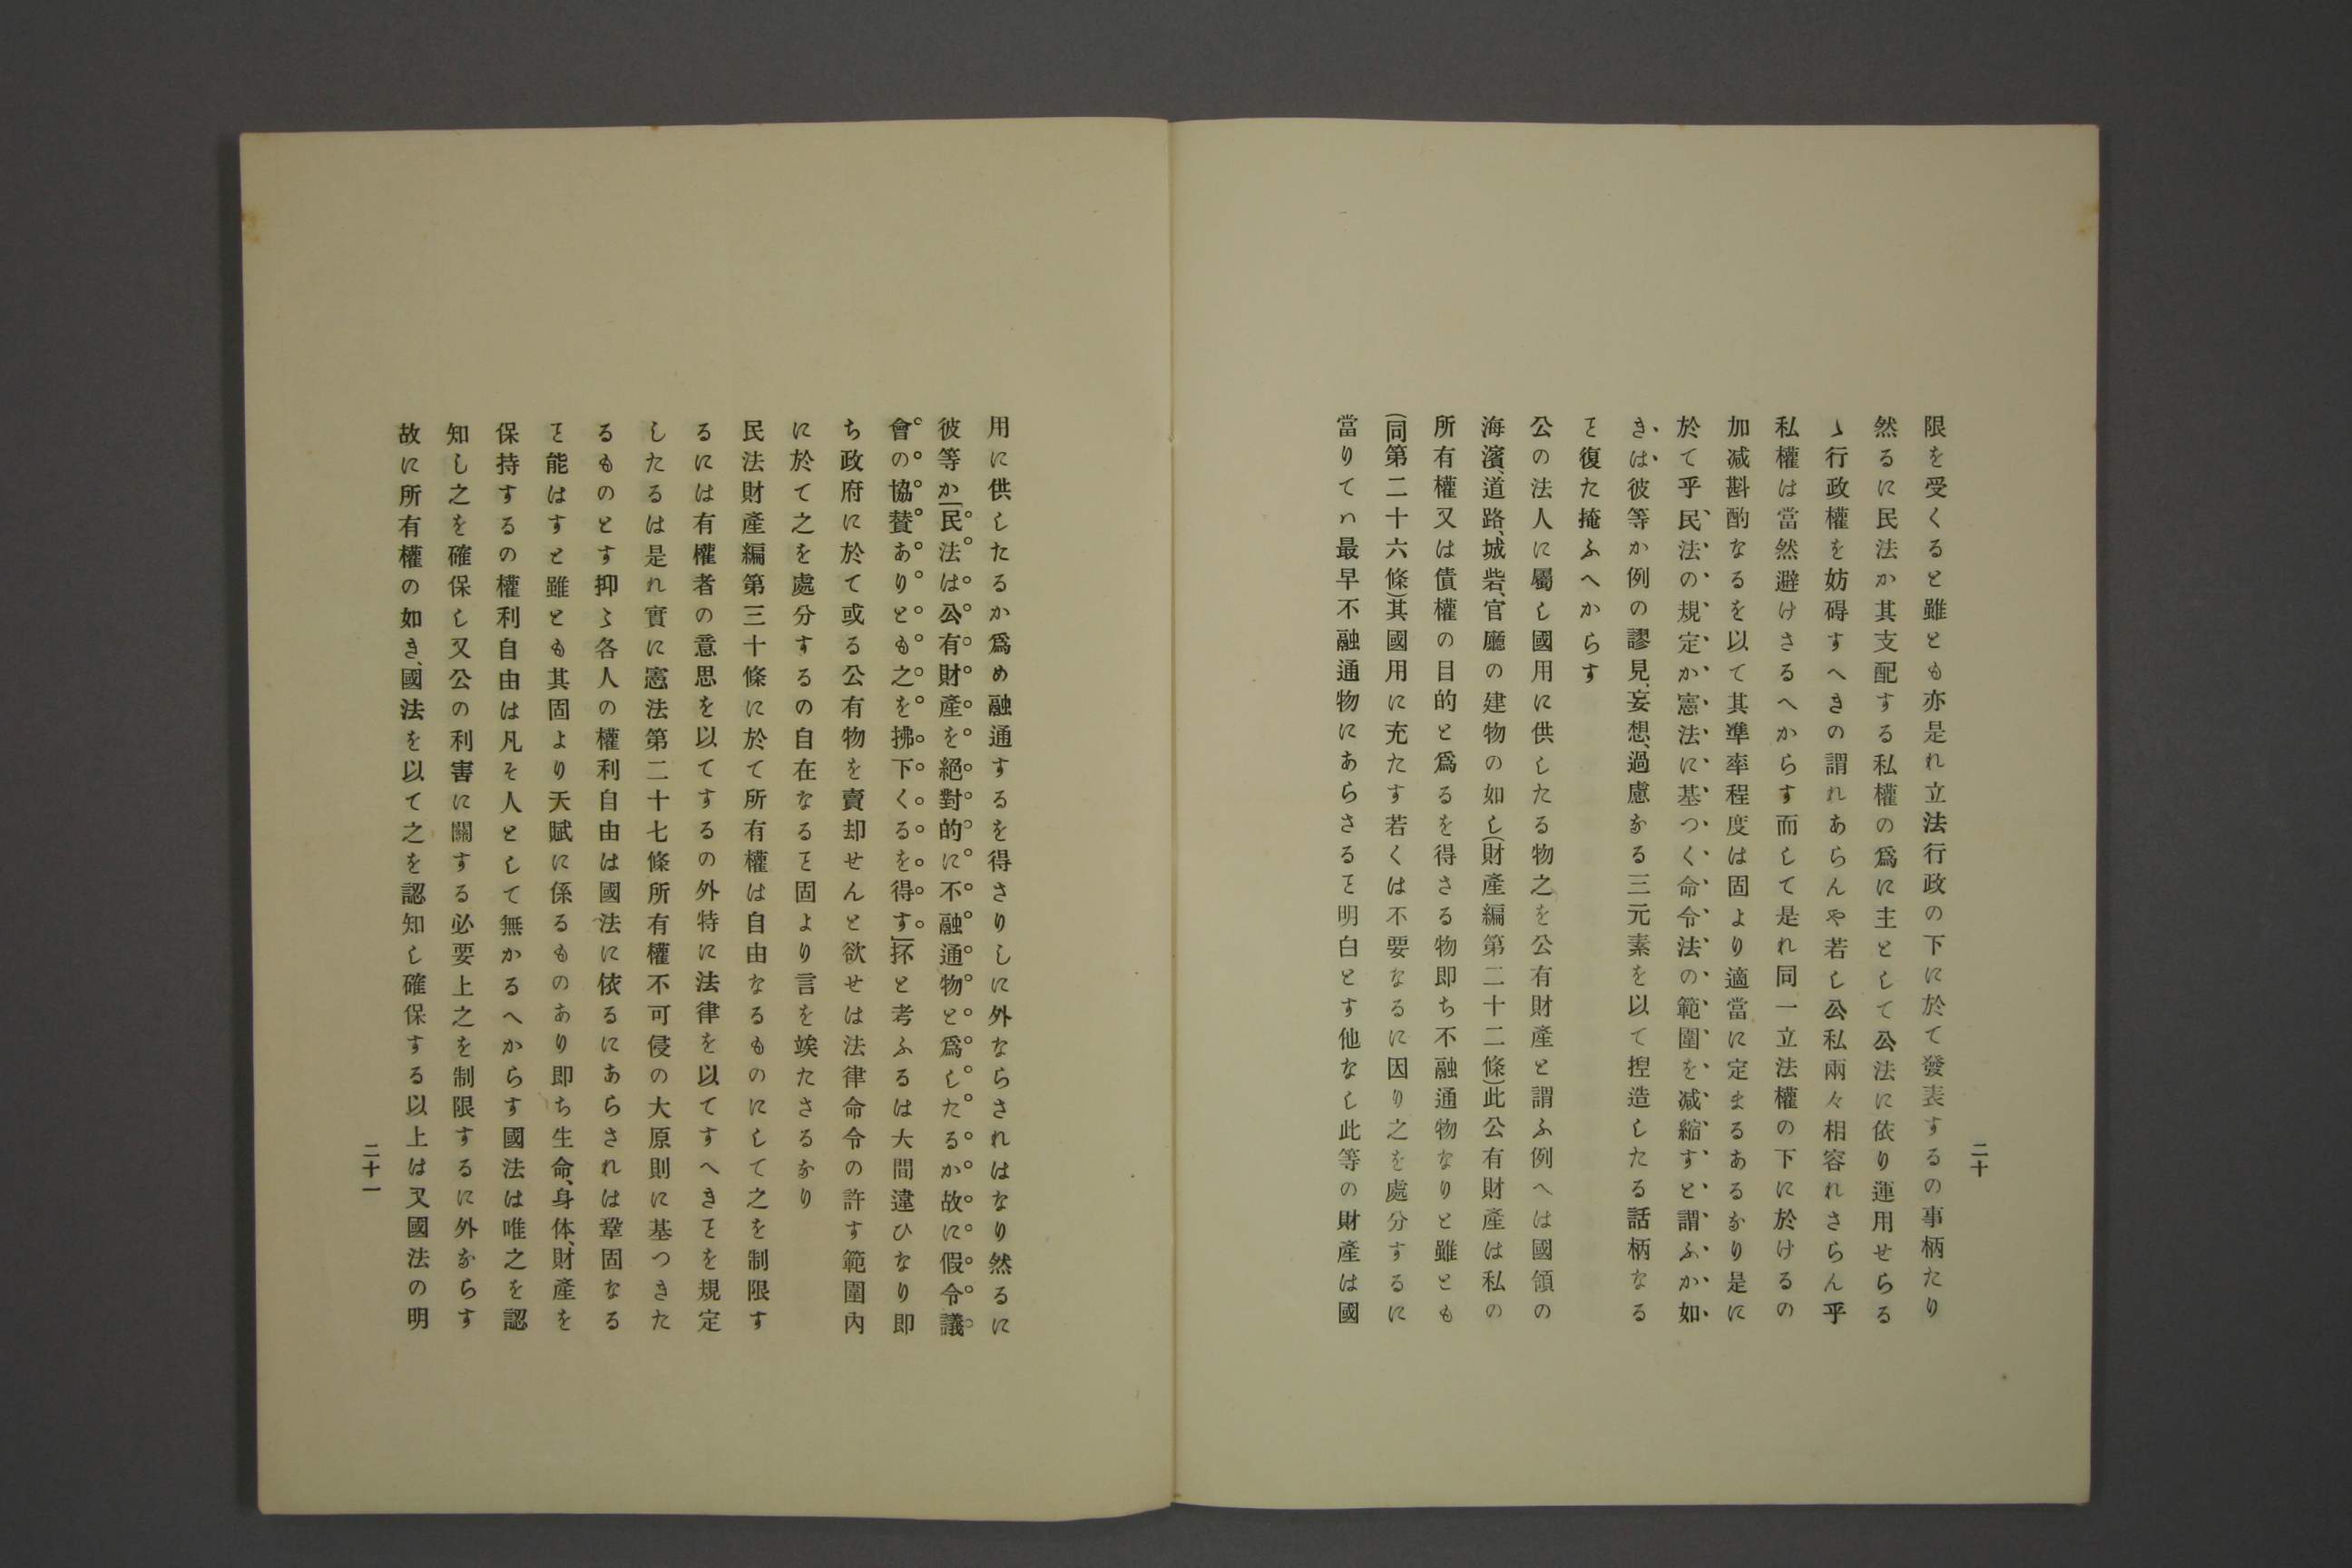 二十
限を受くると雖とも亦是れ立法行政の下に於て發表するの事柄たり
然るに民法か其支配する私權の爲に主として公法に依り運用せらる
ゝ行政權を妨碍すへきの謂れあらんや若し公私兩々相容れさらん乎
私權は當然避けさるへからす而して是れ同一立法權の下に於けるの
加减斟酌なるを以て其準率程度は固より適當に定まるあるなり是に
於て乎民法の規定か憲法に基つく命令法の範圍を减縮すと謂ふか如
きは彼等か例の謬見、妄想、過慮なる三元素を以て揑造したる話柄なる
ヿ復た掩ふへからす
公の法人に屬し國用に供したる物之を公有財產と謂ふ例へは國領の
海濱、道路、城砦、官廳の建物の如し(財產編第二十二條)此公有財產は私の
所有權又は債權の目的と爲るを得さる物即ち不融通物なりと雖とも
(同第二十六條)其國用に充たす若くは不要なるに因り之を處分するに
當りてハ最早不融通物にあらさるヿ明白とす他なし此等の財產は國
用に供したるか爲め融通するを得さりしに外ならされはなり然るに
彼等か「民法は公有財產を絕對的に不融通物と爲したるか故に假令議
會の協賛ありとも之を拂下くるを得す」抔と考ふるは大間違ひなり即
ち政府に於て或る公有物を賣却せんと欲せは法律命令の許す範圍內
に於て之を處分するの自在なるヿ固より言を竢たさるなり
民法財產編第三十條に於て所有權は自由なるものにして之を制限す
るには有權者の意思を以てするの外特に法律を以てすへきヿを規定
したるは是れ實に憲法第二十七條所有權不可侵の大原則に基つきた
るものとす抑〻各人の權利自由は國法に依るにあらされは鞏固なる
ヿ能はすと雖とも其固より天賦に係るものあり即ち生命、身体、財產を
保持するの權利自由は凡そ人として無かるへからす國法は唯之を認
知し之を確保し又公の利害に關する必要上之を制限するに外ならす
故に所有權の如き、國法を以て之を認知し確保する以上は又國法の明
二十一